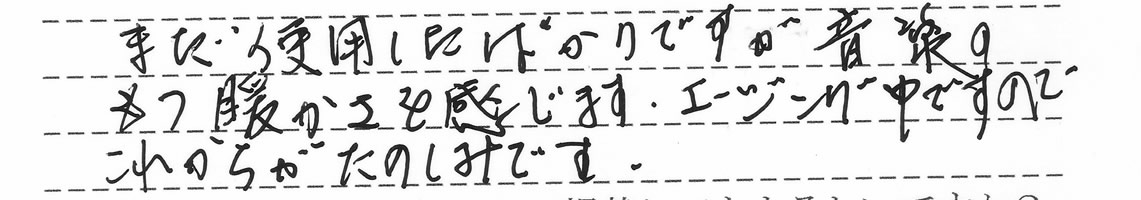 まだ使用したばかりですが音楽の
もつ暖かさを感じます．エージング中ですので
これからがたのしみです．